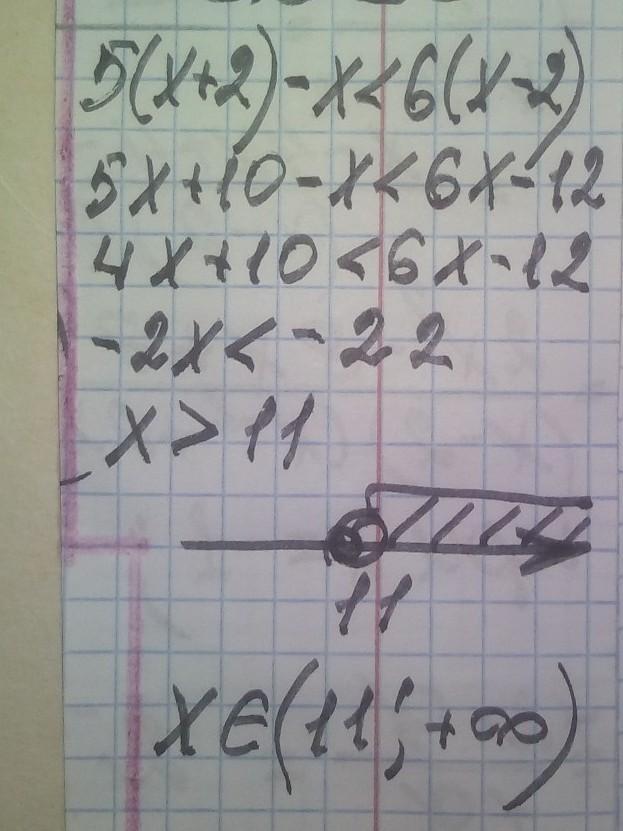 5(x+2)-x<6(x-2)
5x+10-x<6x-12
4x+10<6x-12
-2x<-22
x>11
11
x∈(11;+∞)